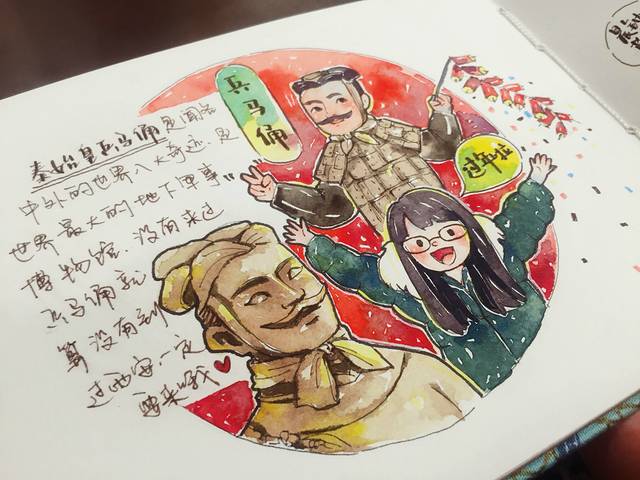 秦始皇兵马俑是闻名
中外的世界八大奇迹.是
世界最大的地下军事
博物馆.没有来过
兵马俑就
算没有到
过西安一定
要来哦
兵马俑
过年啦